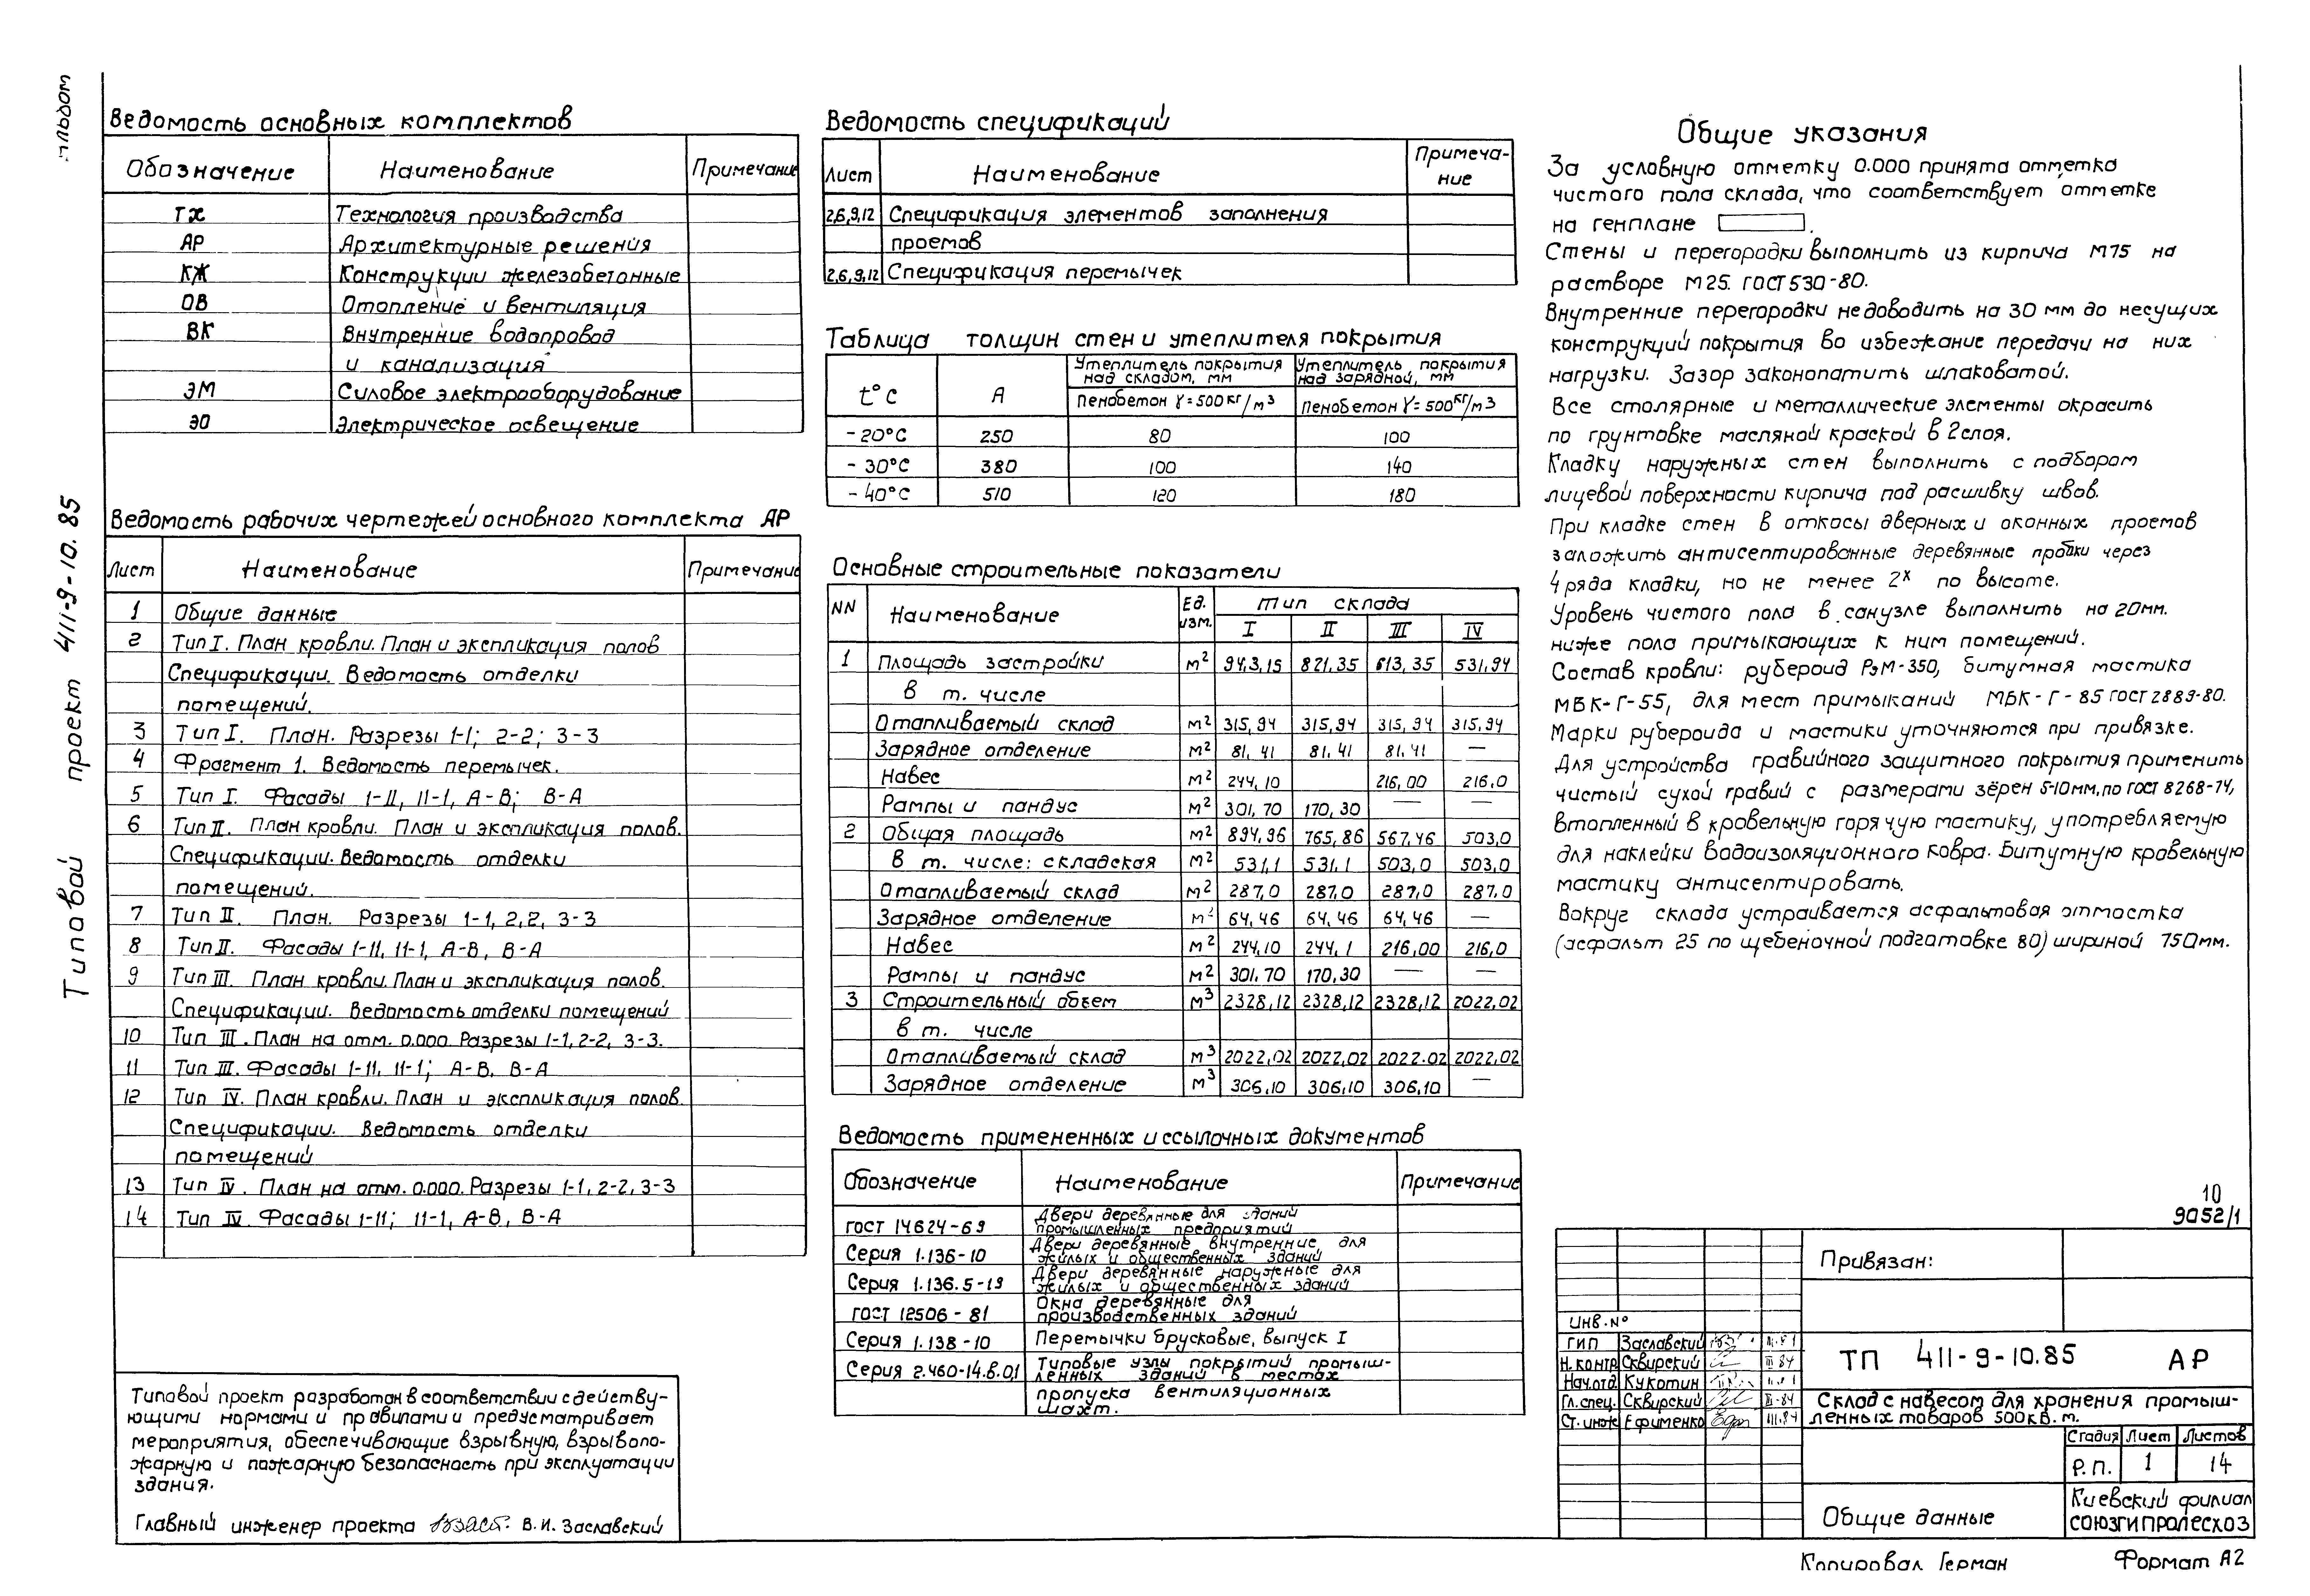 Типовой проект 411-9-10.85
Ведомость основных комплектов
Обозначение Наименование Примечание
ТХ Технология производства
АР Архитектурные решения
КЖ Конструкции железобетонные
ОВ Отопление и вентиляция
ВК Внутренние водопровод
и канализация
ЭМ Силовое электрооборудование
ЭО Электрическое освещение
Ведомость рабочих чертежей основного комплекта АР
Лист Наименование Примечание
1 Общие данные
2 Тип I. План кровли. План и экспликация полов
Спецификации. Ведомость отделки
помещений.
3 Тип I. План. Разрезы 1-1; 2-2; 3-3
4 Фрагмент 1. Ведомость перемычек.
5 Тип I. Фасады 1-11, 11-1, А-В; В-А
6 Тип II. План кровли. План и экспликация полов.
Спецификации. Ведомость отделки
помещений.
7 Тип II. План. Разрезы 1-1, 2,2, 3-3
8 Тип II. Фасады 1-11, 11-1, А-В, В-А
9 Тип III. План кровли. План и экспликация полов.
Спецификации. Ведомость отделки помещений
10 Тип III. План на отм. 0.000 Разрезы 1-1, 2-2, 3-3.
11 Тип III. Фасады 1-11, 11-1; А-В, В-А
12 Тип IV. План кровли. План и экспликация полов.
Спецификации. Ведомость отделки
помещений
13 Тип IV. План на отм. 0.000. Разрезы 1-1, 2-2, 3-3
14 Тип IV. Фасады 1-11; 11-1, А-В, В-А
Типовой проект разработан в соответствии с действу-
ющими нормами и правилами и предусматривает
мероприятия, обеспечивающие взрывную, взрывопо-
жарную и пожарную безопасность при эксплуатации
здания.
Главный инженер проекта В.И. Заславский
Ведомость спецификаций
Лист Наименование Примеча-
ние
2,6,9,12 Спецификация элементов заполнения
проемов
2,6,9,12 Спецификация перемычек
Таблица толщин стен и утеплителя покрытия
t°C А Утеплитель покрытия над складом, мм Утеплитель покрытия над зарядной, мм
Пенобетон γ=500 кг/м3 Пенобетон γ=500 кг/м3
-20°C 250 80 100
-30°C 380 100 140
-40°C 510 120 180
Основные строительные показатели
NN Наименование Ед. изм. Тип склада
I II III IV
1 Площадь застройки м2 943,15 821,35 613,35 531,94
в т. числе
Отапливаемый склад м2 315,94 315,94 315,94 315,94
Зарядное отделение м2 81,41 81,41 81,41 —
Навес м2 244,10 216,00 216,0
Рампы и пандус м2 301,70 170,30 — —
2 Общая площадь м2 894,96 765,86 567,46 503,0
в т. числе: складская м2 531,1 531,1 503,0 503,0
Отапливаемый склад м2 287,0 287,0 287,0 287,0
Зарядное отделение м2 64,46 64,46 64,46 —
Навес м2 244,10 244,1 216,00 216,0
Рампы и пандус м2 301,70 170,30 — —
3 Строительный объем м3 2328,12 2328,12 2328,12 2022,02
в т. числе
Отапливаемый склад м3 2022,02 2022,02 2022.02 2022,02
Зарядное отделение м3 306,10 306,10 306,10 —
Ведомость примененных и ссылочных документов
Обозначение Наименование Примечание
ГОСТ 14624-69 Двери деревянные для зданий
промышленных предприятий
Серия 1.136-10 Двери деревянные внутренние для
жилых и общественных зданий
Серия 1.136.5-19 Двери деревянные наружные для
жилых и общественных зданий
ГОСТ 12506-81 Окна деревянные для
производственных зданий
Серия 1.138-10 Перемычки брусковые, выпуск I
Серия 2.460-14.в.0,1 Типовые узлы покрытий промыш-
ленных зданий в местах
пропуска вентиляционных
шахт.
Общие указания
За условную отметку 0.000 принята отметка
чистого пола склада, что соответствует отметке
на генплане .
Стены и перегородки выполнить из кирпича М75 на
растворе М25. ГОСТ 530-80.
Внутренние перегородки недоводить на 30 мм до несущих
конструкций покрытия во избежание передачи на них
нагрузки. Зазор законопатить шлаковатой.
Все столярные и металлические элементы окрасить
по грунтовке масляной краской в 2 слоя.
Кладку наружных стен выполнить с подбором
лицевой поверхности кирпича под расшивку швов.
При кладке стен в откосы дверных и оконных проемов
заложить антисептированные деревянные пробки через
4 ряда кладки, но не менее 2х по высоте.
Уровень чистого пола в санузле выполнить на 20мм.
ниже пола примыкающих к ним помещений.
Состав кровли: рубероид РэМ-350, битумная мастика
МБК-Г-55, для мест примыканий МБК-Г-85 ГОСТ 2889-80.
Марки рубероида и мастики уточняются при привязке.
Для устройства гравийного защитного покрытия применить
чистый сухой гравий с размерами зёрен 5-10мм, по ГОСТ 8268-74,
втопленный в кровельную горячую мастику, употребляемую
для наклейки водоизоляционного ковра. Битумную кровельную
мастику антисептировать.
Вокруг склада устраивается асфальтовая отмостка
(асфальт 25 по щебеночной подготовке 80) шириной 750мм.
10
9052/1
Привязан:
Инв.№
ГИП Заславский
Н.контр Сквирский III-84
Нач.отд Кукотин
Гл.спец. Сквирский III-84
Ст.инж Ефименко III.84
ТП 411-9-10.85 АР
Склад с навесом для хранения промыш-
ленных товаров 500 кв.м.
Стадия Лист Листов
Р.П. 1 14
Общие данные
Киевский филиал
СОЮЗГИПРОЛЕСХОЗ
Копировал Герман Формат А2